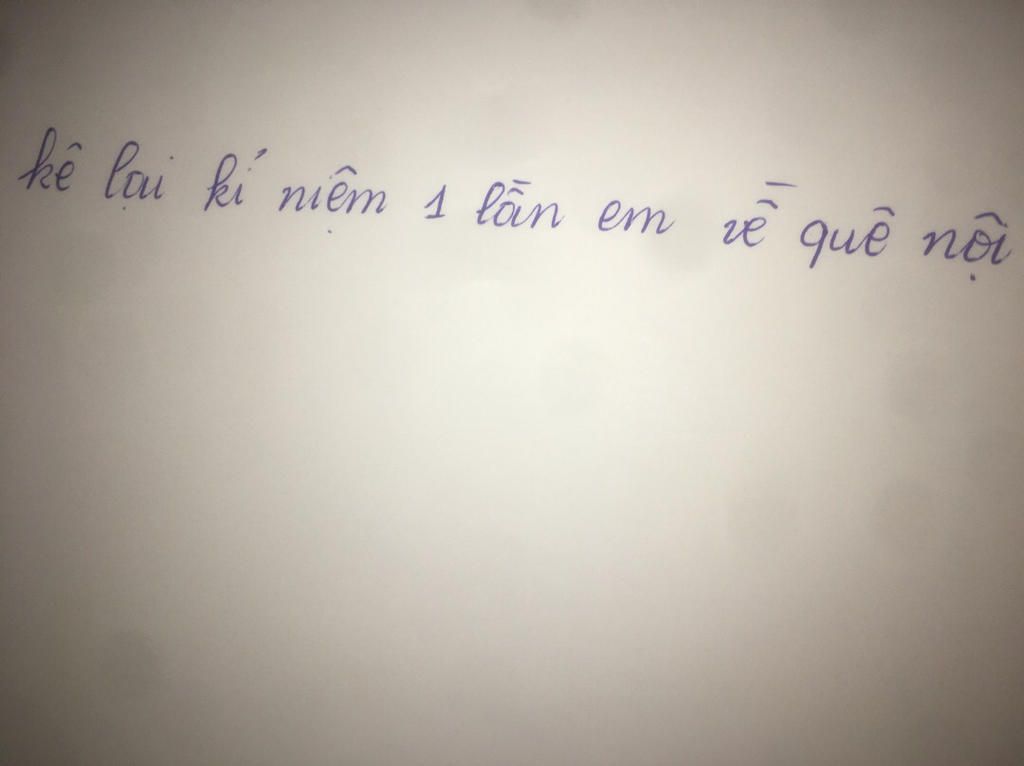 kê lại kí niệm 1 lần em về quê nội